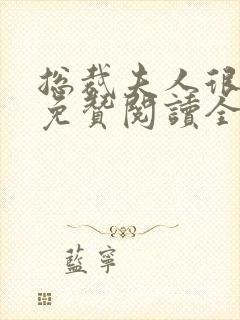 總裁夫人很
免費閱讀全
藍寧